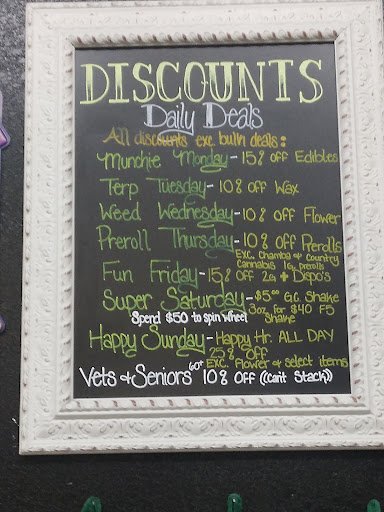 DISCOUNTS
Daily Deals
All discounts exc. bulk deals:
Munchie Monday - 15% off Edibles
Terp Tuesday - 10% off Wax
Weed Wednesday - 10% off Flower
Preroll Thursday - 10% off Prerolls
Exc. Chamba & Country
Cannabis 1g prerolls
Fun Friday - 15% off 2g + Dispo's
Super Saturday - $5.00 G.C. Shake
3oz for $40 F5
Spend $50 to spin wheel
Shake
Happy Sunday - Happy Hr. ALL DAY
25% off
Exc. Flower & select items
Vets & Seniors 60+ 10% off ((Can't Stack))